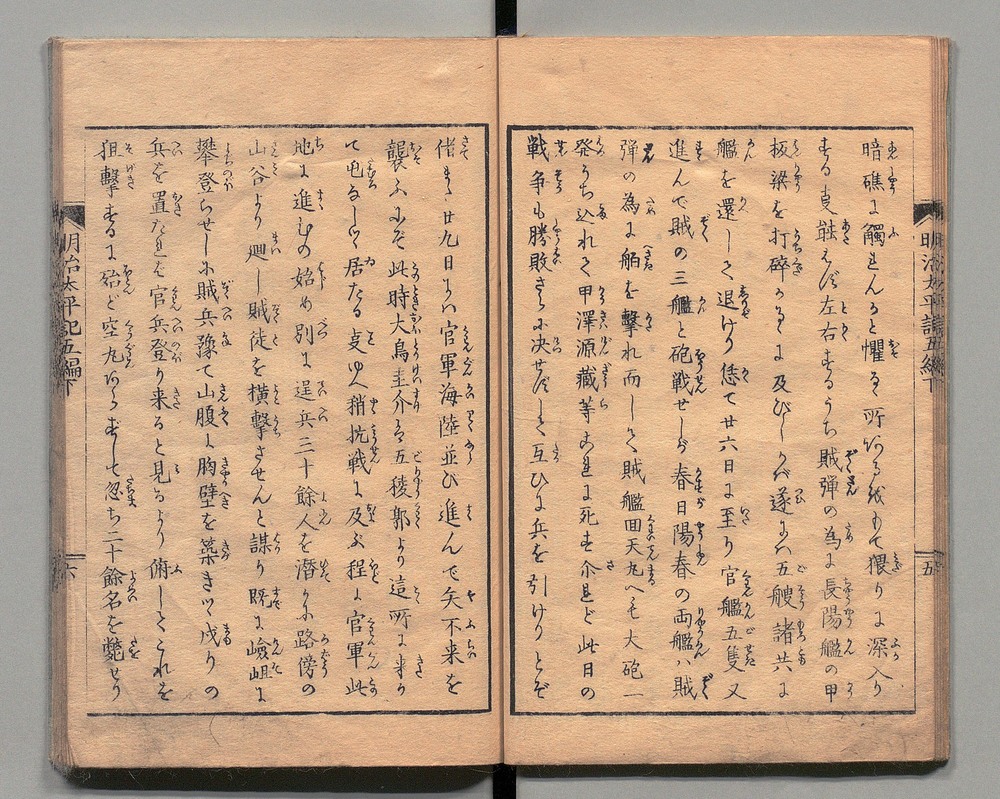 暗礁に觸れんると懼る所あるを以て猥りに深入り
する叓能はず左右するうち賊弾の為に長陽艦の甲
板梁を打碎かるゝに及びしかば遂には五艘諸共に
艦を還して退けり恁て廿六日に至り官艦五隻又
進んで賊の三艦と砲戦せしが春日陽春の両艦ハ賊
弾の為に舶を擊れ而して賊艦回天丸へも大砲一
発うち込れて甲澤源藏等これに死す介れど此日の
戦争も勝敗さらに决せずして互ひに兵を引けりとぞ
偖また廿九日には官軍海陸並び進んで矢不来を
襲ふにぞ此時大鳥圭介は五稜郭より這所に来り
て屯なして居たる叓ゆへ稍抗戦に及ぶ程に官軍此
地に進むの始め別に逞兵三十餘人を潜かに路傍の
山谷より廻し賊徒を横擊させんと謀り既に嶮岨に
攀登らせしに賊兵豫て山腹に胸壁を築きつゝ戍りの
兵を置たれば官兵登り来ると見るより俯してこれを
狙擊するに殆ど空丸あらずして忽ち二十餘名を斃せり
明治太平記五編下
五
明治太平記五編下
六